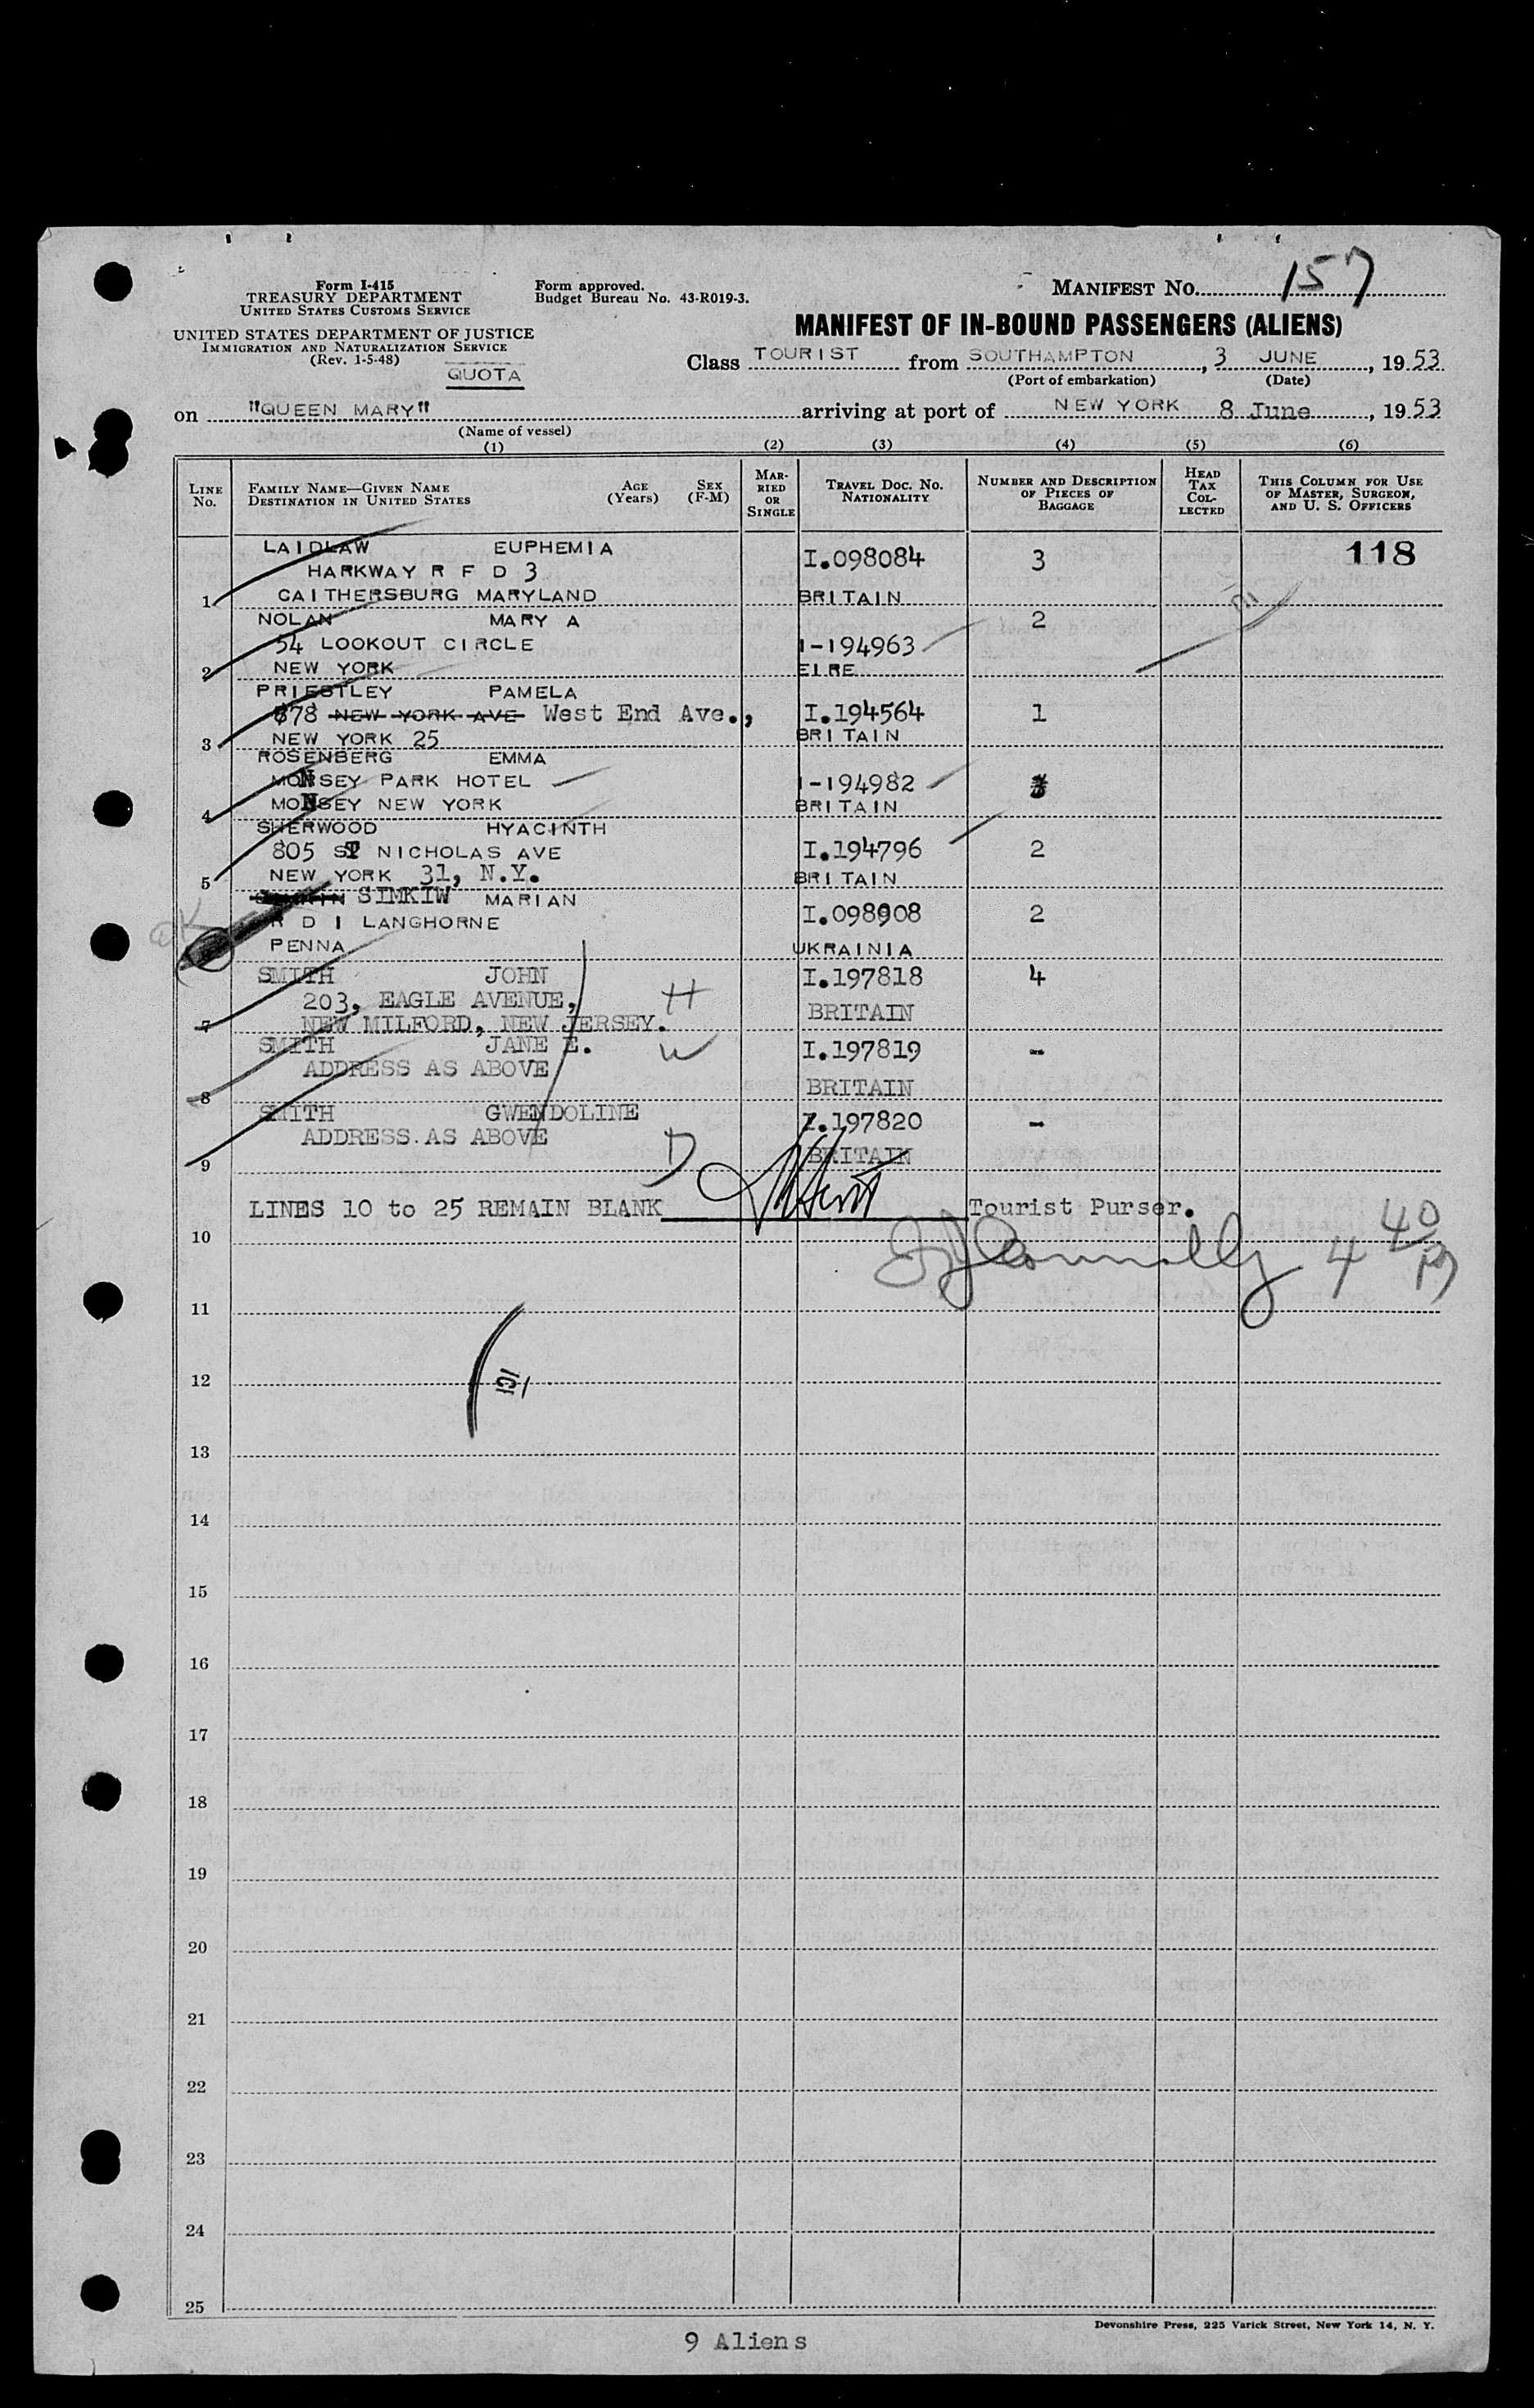 Form I-415
TREASURY DEPARTMENT
UNITED STATES CUSTOMS SERVICE
UNITED STATES DEPARTMENT OF JUSTICE
IMMIGRATION AND NATURALIZATION SERVICE
(Rev. 1-5-48)
QUOTA
Form approved.
Budget Bureau No. 43-R019-3.
MANIFEST NO. 157
MANIFEST OF IN-BOUND PASSENGERS (ALIENS)
Class TOURIST from SOUTHAMPTON, 3 JUNE, 1953
(Port of embarkation) (Date)
on "QUEEN MARY" arriving at port of NEW YORK 8 June, 1953
(Name of vessel)
(1) (2) (3) (4) (5) (6)
LINE NO.
FAMILY NAME—GIVEN NAME
DESTINATION IN UNITED STATES
AGE (Years)
SEX (F-M)
MARRIED OR SINGLE
TRAVEL DOC. NO. NATIONALITY
NUMBER AND DESCRIPTION OF PIECES OF BAGGAGE
HEAD TAX COLLECTED
THIS COLUMN FOR USE OF MASTER, SURGEON, AND U. S. OFFICERS
118
LAIDLAW EUPHEMIA I.098084 3
HARKWAY R F D 3
1 GAITHERSBURG MARYLAND BRITAIN
NOLAN MARY A 2
54 LOOKOUT CIRCLE I-194963
2 NEW YORK EIRE
PRIESTLEY PAMELA
878 NEW YORK AVE West End Ave., I.194564 1
3 NEW YORK 25 BRITAIN
ROSENBERG EMMA
MONSEY PARK HOTEL I-194982
4 MONSEY NEW YORK BRITAIN
SHERWOOD HYACINTH
805 ST NICHOLAS AVE I.194796 2
5 NEW YORK 31, N.Y. BRITAIN
SIMKIW MARIAN
R D I LANGHORNE I.098908 2
PENNA UKRAINIA
OK
SMITH JOHN I.197818 4
203, EAGLE AVENUE, H
7 NEW MILFORD, NEW JERSEY. BRITAIN
SMITH JANE E. W I.197819 -
ADDRESS AS ABOVE
8 BRITAIN
SMITH GWENDOLINE I.197820 -
ADDRESS AS ABOVE D
9 BRITAIN
LINES 10 to 25 REMAIN BLANK Tourist Purser.
10 4 40
11
12
13
14
15
16
17
18
19
20
21
22
23
24
25
Devonshire Press, 225 Varick Street, New York 14, N. Y.
9 Aliens